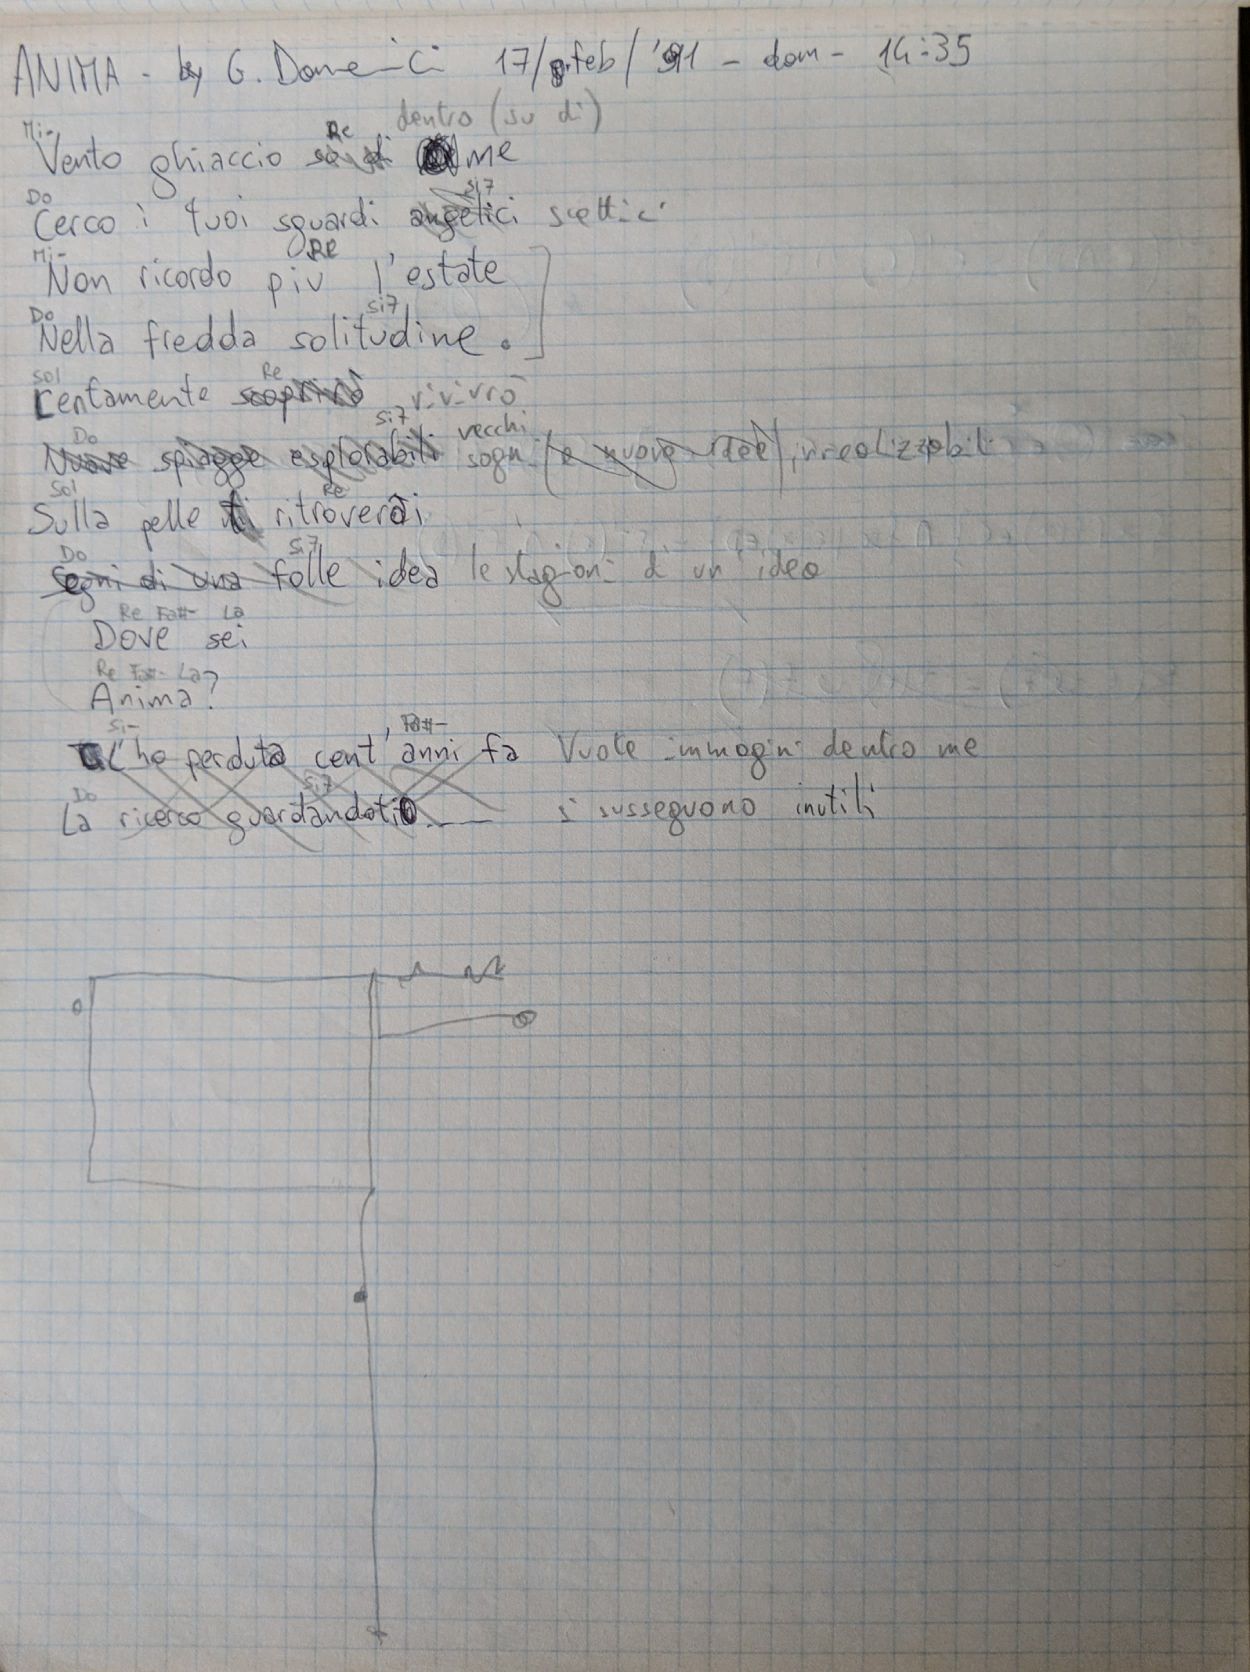 ANIMA - by G. Domenici 17/feb/'91 - dom - 14:35
dentro (su di)
Mi- Re
Vento ghiaccio su di me
Do Si7
Cerco i tuoi sguardi angelici scettici
Mi- RE
Non ricordo più l'estate
Do Si7
Nella fredda solitudine.
Sol Re
Lentamente scoprirò rivivrò
Do Si7 vecchi
Nuove spiagge esplorabili sogni (e nuove idee) irrealizzabili
Sol Re
Sulla pelle ti ritroverai
Do Si7
Segni di una folle idea le stagioni di un'idea
Re Fa#- La
Dove sei
Re Fa#- La
Anima?
Si- Fa#-
L'ho perduta cent'anni fa Vuote immagini dentro me
Do Si7
La ricerco guardandoti si susseguono inutili